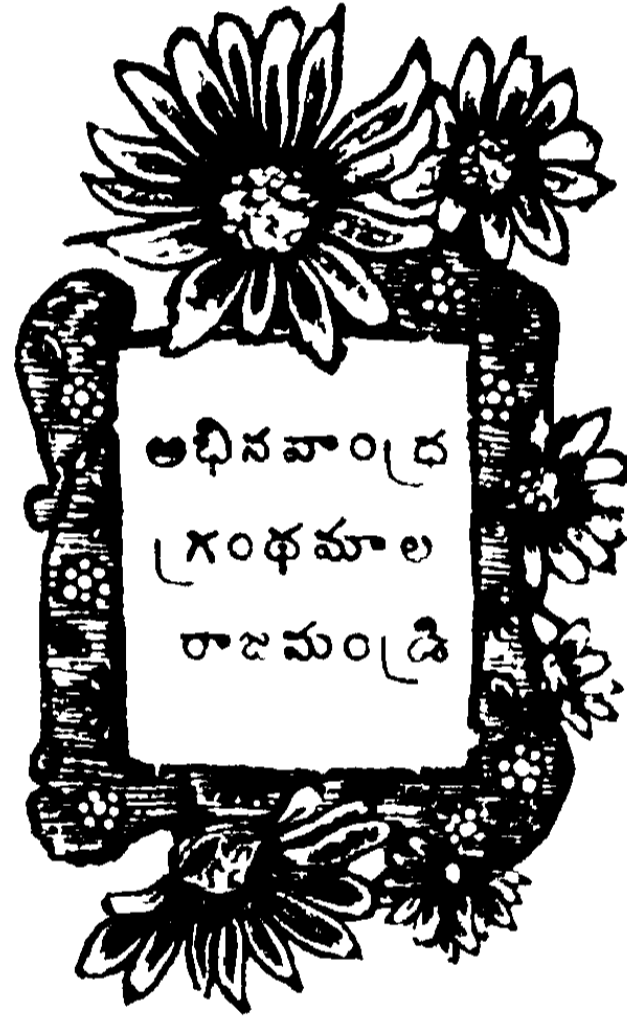 అభినవాంధ్ర
గ్రంథమాల
రాజమండ్రి